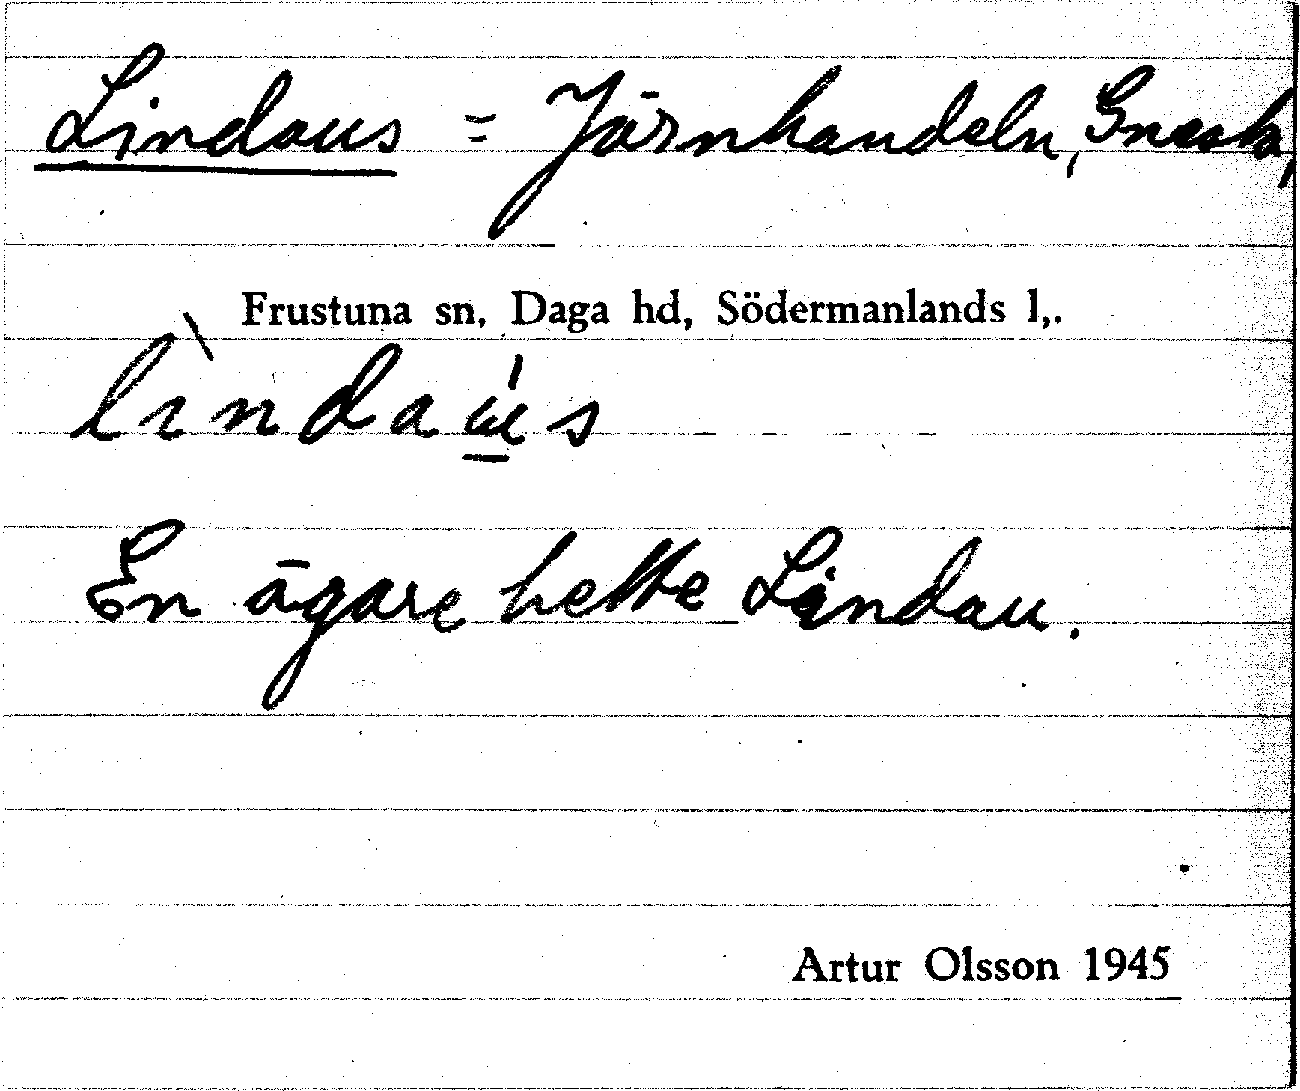 Lindaus = Järnhandeln, Gnesta,
Frustuna sn, Daga hd, Södermanlands l,.
lìndaú̲s
En ägare hette Lindau.
Artur Olsson 1945